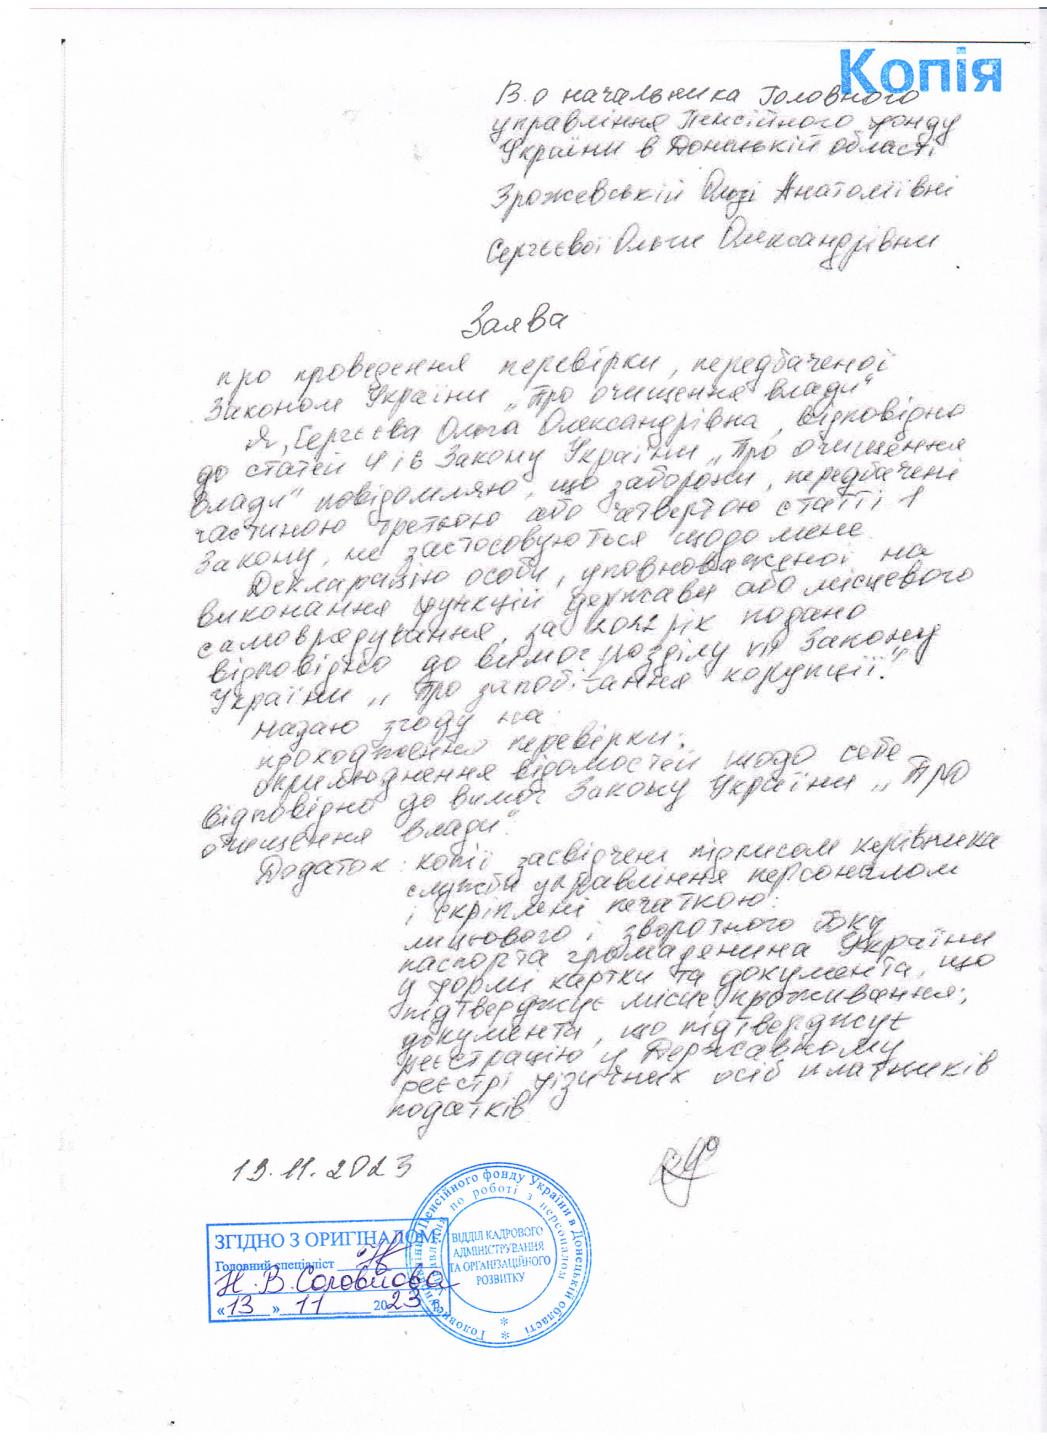 Копія
В.о начальника Головного
управління Пенсійного фонду
України в Донецькій області
Зрожевській Ользі Анатоліївні
Сергєєвої Ольги Олександрівни
Заява
про проведення перевірки, передбаченої
Законом України „Про очищення влади"
Я, Сергєєва Ольга Олександрівна, відповідно
до статей 4 і 6 Закону України „Про очищення
влади" повідомляю, що заборони, передбачені
частиною третьою або четвертою статті 1
Закону, не застосовуються щодо мене.
Декларацію особи, уповноваженої на
виконання функцій держави або місцевого
самоврядування, за 2022 рік подано
відповідно до вимог розділу VII Закону
України „Про запобігання корупції".
Надаю згоду на:
проходження перевірки;
оприлюднення відомостей щодо себе
відповідно до вимог Закону України „Про
очищення влади".
Додаток: копії засвідчені підписом керівника
служби управління персоналом
і скріплені печаткою:
лицьового і зворотного боку
паспорта громадянина України
у формі картки та документа, що
підтверджує місце проживання;
документа, що підтверджує
реєстрацію у Державному
реєстрі фізичних осіб платників
податків
13.11.2023
ЗГІДНО З ОРИГІНАЛОМ
Головний спеціаліст
Н.В. Соловйова
«13» 11 2023 р.
Головне управління Пенсійного фонду України в Донецькій області
управління по роботі з персоналом
ВІДДІЛ КАДРОВОГО
АДМІНІСТРУВАННЯ
ТА ОРГАНІЗАЦІЙНОГО
РОЗВИТКУ